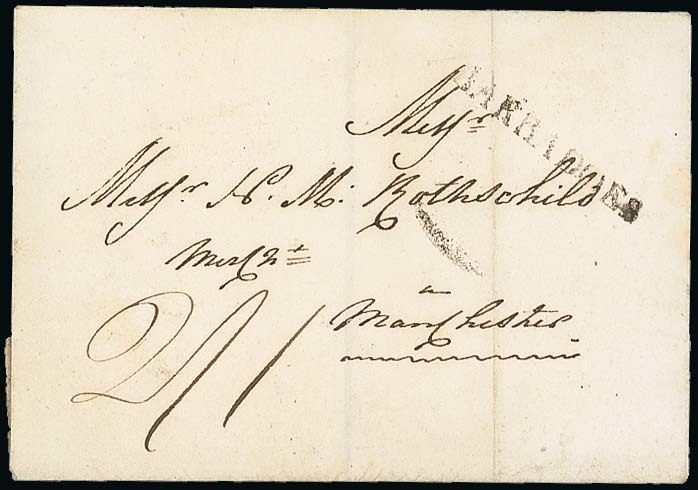 BARBADOES
Messrs
Messr N. M. Rothschild
Merchts
a
Manchester
2/1